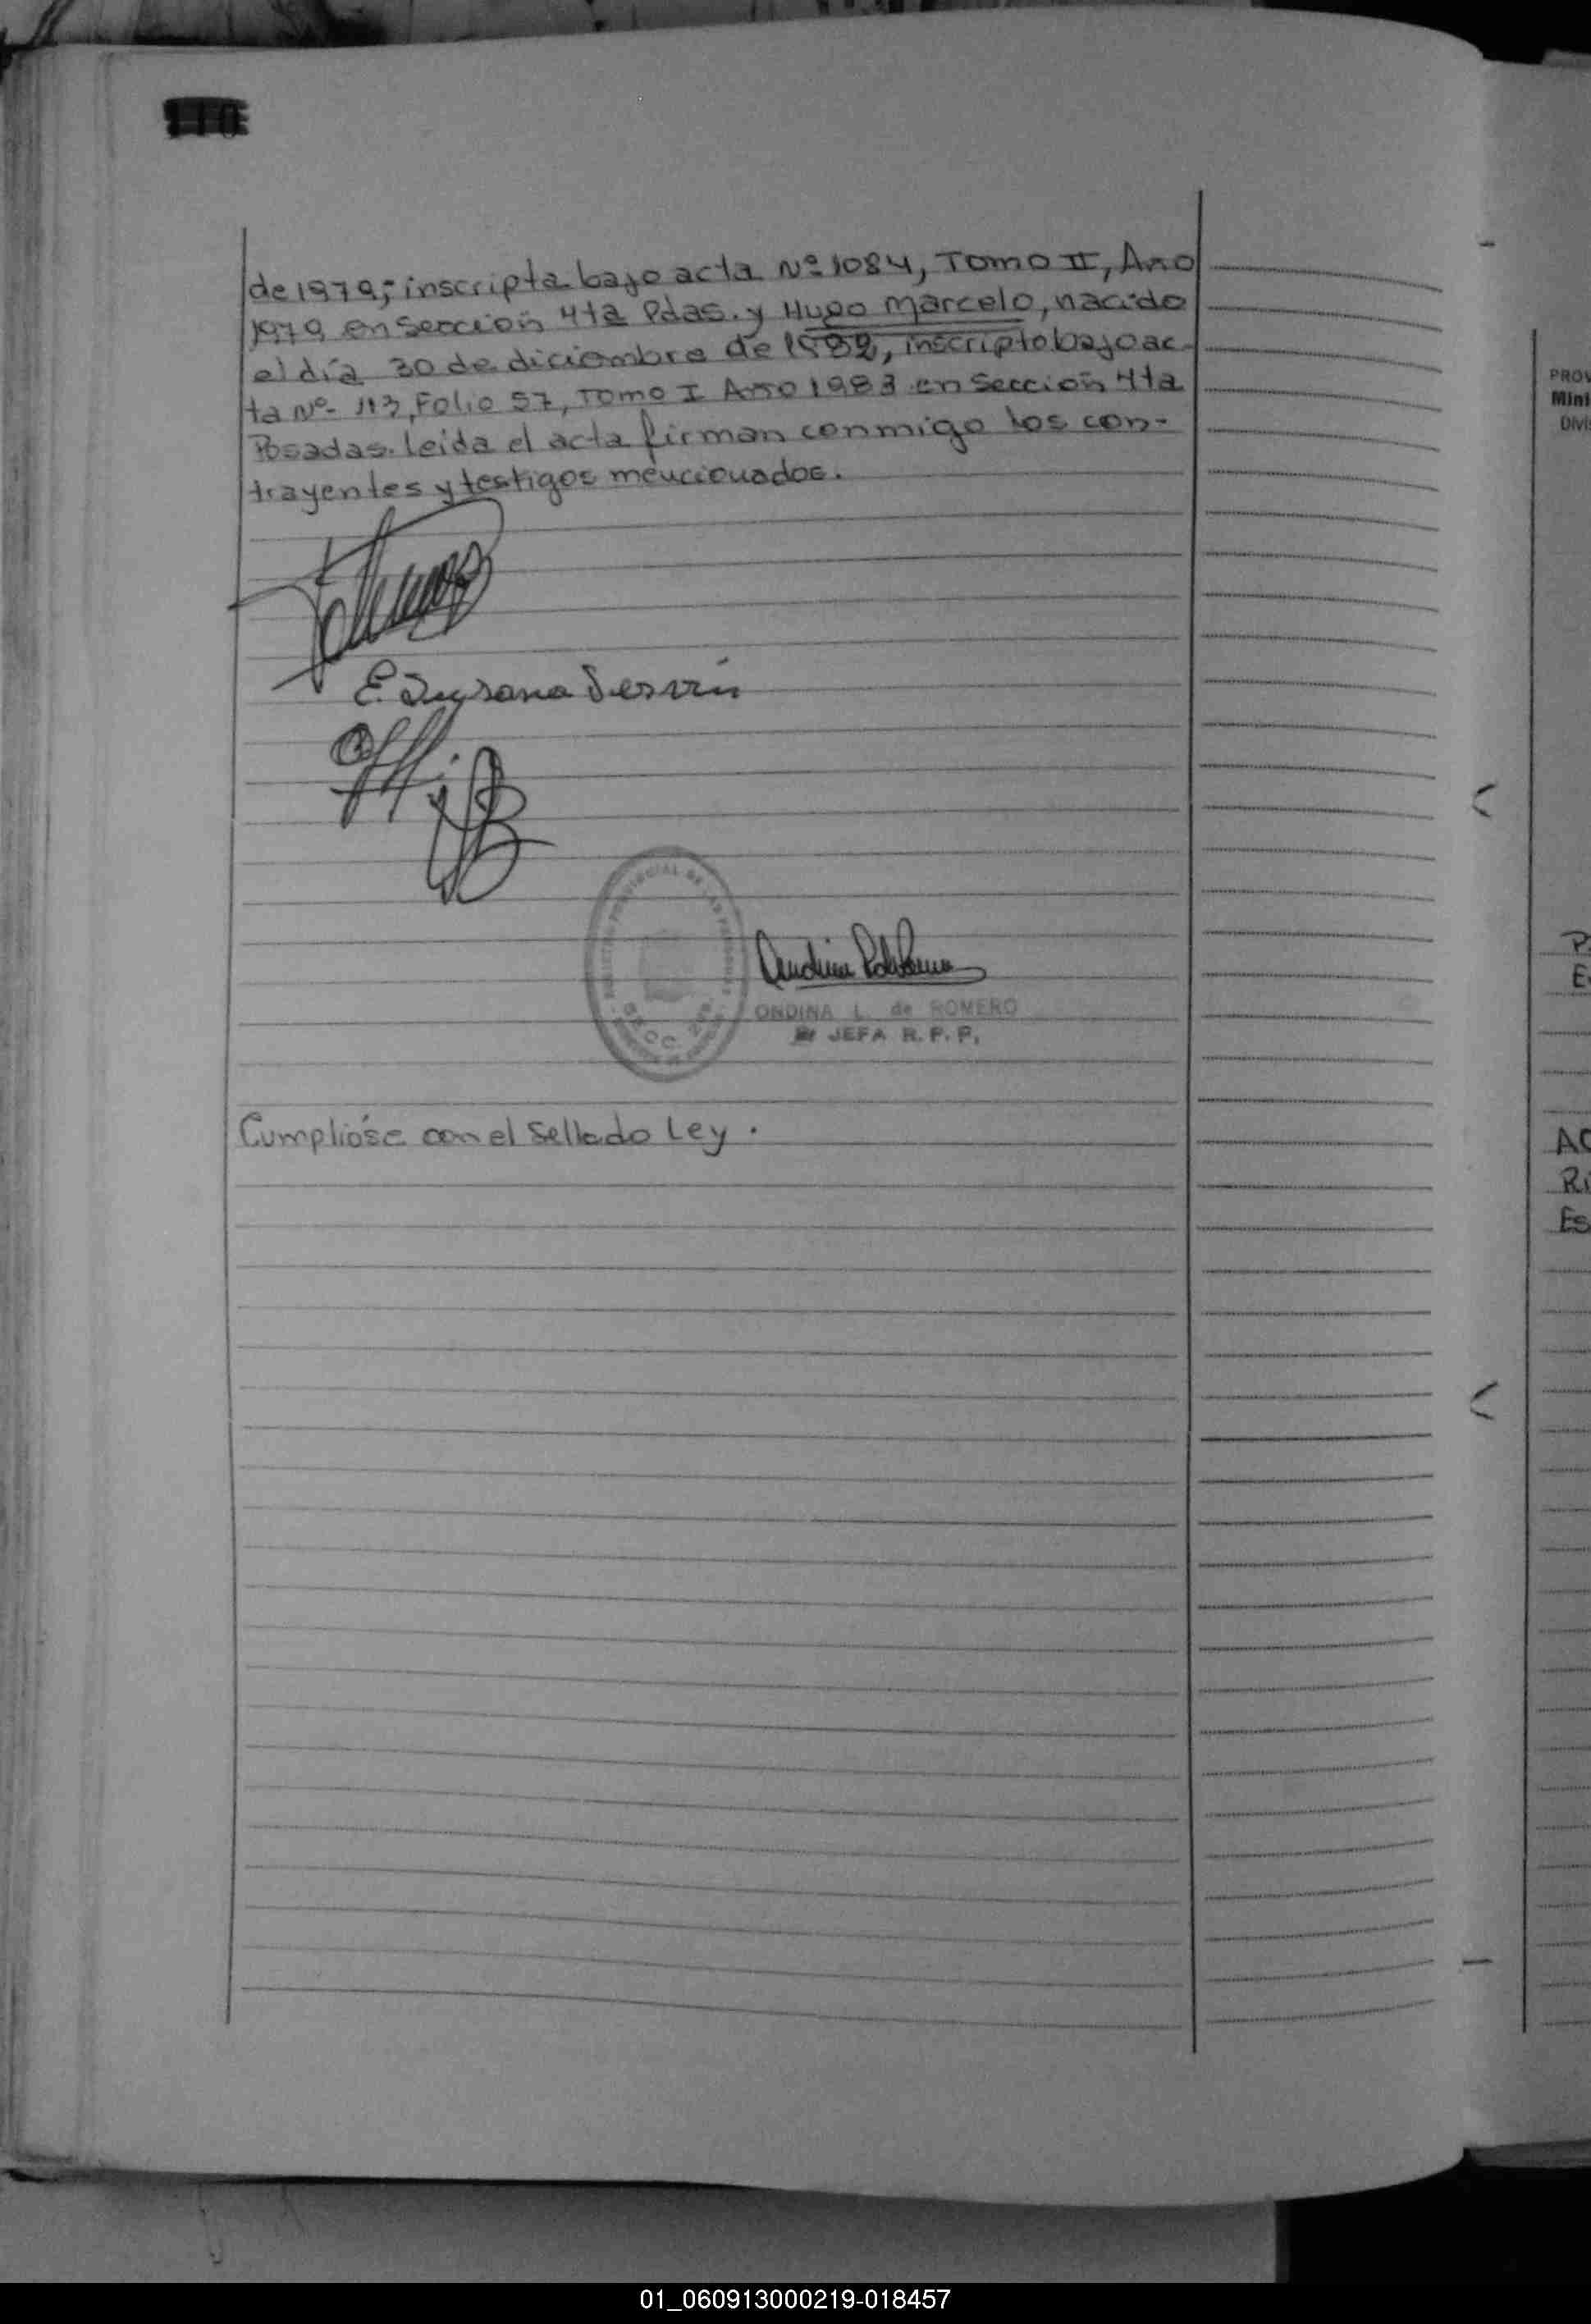 110
de 1979; inscripta bajo acta Nº 1084, Tomo II, Año
1979 en Sección 4ta Pdas. y Hugo Marcelo, nacido
el día 30 de diciembre de 1982, inscripto bajo ac-
ta Nº- 113, Folio 57, Tomo I Año 1983 en Sección 4ta
Posadas. Leida el acta firman conmigo los con-
trayentes y testigos mencionados.
E. Susana Servín
ONDINA L. de ROMERO
JEFA R. P. P.
Cumplióse con el Sellado Ley.
PROV
Mini
DIVI
AC
Ri
Es
01_060913000219-018457